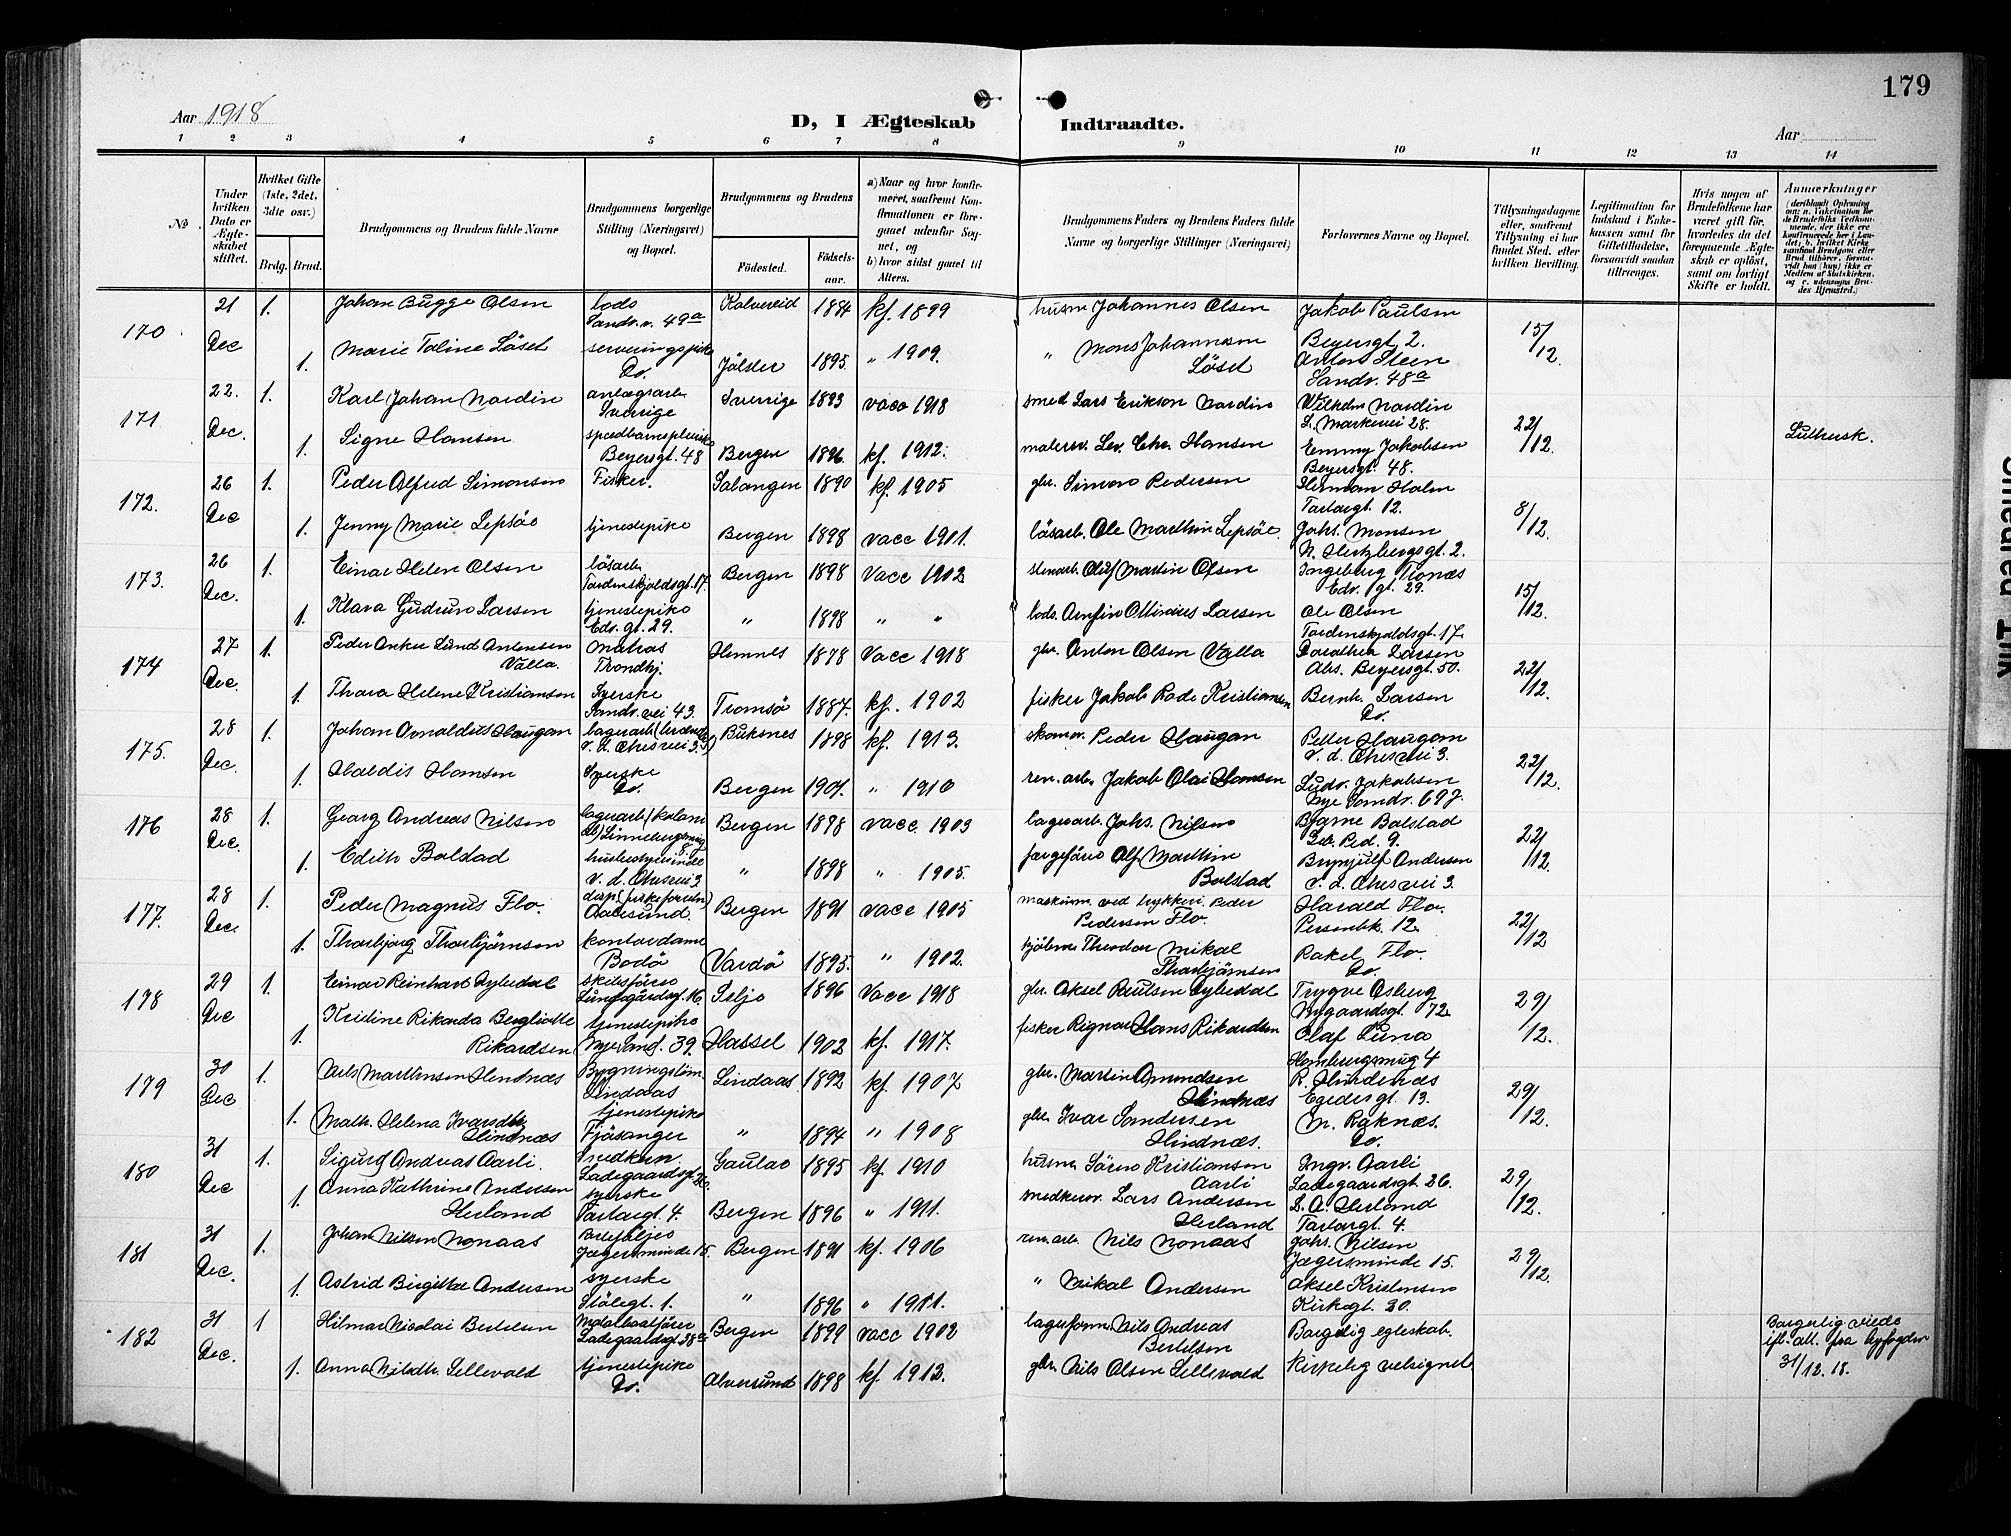 179
Aar 1918
D, I Ægteskab Indtraadte.
Aar
1 2 3 4 5 6 7 8 9 10 11 12 13 14
No
Under hvilken Dato er Ægteskabet stiftet.
Hvilket Gifte (1ste, 2det, 3die osv.)
Brdg. Brud.
Brudgommens og Brudens fulde Navne
Brudgommens borgerlige Stilling (Næringsvei) og Bopæl.
Brudgommens og Brudens
Fødested.
Fødselsaar.
a) Naar og hvor konfirmeret, saafremt Konfirmationen er foregaaet udenfor Sognet, og
b) hvor sidst gaaet til Alters.
Brudgommens Faders og Brudens Faders fulde Navne og borgerlige Stillinger (Næringsvei)
Forlovernes Navne og Bopæl.
Tillysningsdagene eller, saafremt Tillysning ei har fundet Sted, efter hvilken Bevilling.
Legitimation for Indskud i Enkekassen samt for Giftetilladelse, forsaavidt saadan tiltrænges.
Hvis nogen af Brudefolkene har været gift før, hvorledes da det foregaaende Ægteskab er opløst, samt om lovligt Skifte er holdt.
Anmærkninger
170 21 Dec 1. Johan Bugge Olsen lods Sandv.v. 49a Kalvereid 1884 kf. 1899 husm Johannes Olsen Jakob Paulsen Beyersgt 2. 15/12
1. Marie Taline Løset serveringspike Do. Jølster 1895 " 1909. " Mons Johannesen Løset Anton Steen Sandv. 48a
171 22. Dec. 1. Karl Johan Nordin anlægsarb. Sverrige Sverrige 1893 vacc 1918 smed Lars Erikson Nordin Wilhelm Nordin L. Markevei 28. 22/12
1. Signe Hansen spædbarnspleierske Beyersgt. 48 Bergen 1896 kf. 1912. malersv. Lev. Chr. Hansen Emmy Jakobsen Beyersgt. 48. Luthersk.
172. 26 Dec 1. Peder Alfred Simonsen Fisker. Salangen 1890 kf. 1905 gbr. Simon Pedersen Herman Holm Tartargt. 12. 8/12
1. Jenny Marie Lepsøe tjenestepike Bergen 1898 vacc 1901. løsarb. Ole Marthin Lepsøe. Johs. Monsen N. Hertzbergsgt. 2.
173. 26 Dec. 1. Einar Helen Olsen løsarb. Tordenskjoldsgt. 17. Bergen 1898 Vacc 1902 stenarb. Oluf Martin Olsen Ingeborg Tronæs Edv. gt. 29. 15/12.
1. Klara Gudrun Larsen tjenestepike Edv. gt. 29. " 1898 " " lods. Arnfin Ottinius Larsen Ole Olsen Tordenskjoldsgt. 17.
174 27 Dec. 1. Peder Anker Lund Antonsen Valla. Matros Trondhj. Hemnes 1878 Vacc 1918 gbr. Anton Olsen Valla Dorothea Larsen Abs. Beyersgt. 50. 22/12
1. Thora Helene Kristiansen Syerske Sandv. vei 43. Tromsø 1887. kf. 1902 fisker Jakob Rode Kristiansen Bernh. Larsen Do.
175. 28 Dec. 1. Johan Arnoldus Haugan lagerarb. Buksnes 1898 kf. 1913. skomv. Peder Haugan Petter Haugan v. d. Ohrsvei 3. 22/12.
1. Haldis Hansen Syerske Do. Bergen 1901. " 1910 ren.arb. Jakob Olai Hansen Ludv. Jakobsen Nye Sandv. 69 f.
176 28 Dec. 1. Georg Andreas Nilsen lagerarb. Bergen 1898 vacc. 1903 lagerarb. Johs. Nilsen Bjarne Bolstad 22/12.
1. Edith Bolstad v. d. Ohrsvei 3 " 1898 " 1905. færgefører Alf Marthin Bolstad Brynjulf Andersen v. d. Ohrsvei 3.
177. 28 Dec. 1. Peder Magnus Flo. disp. Aalesund. Bergen 1891 vacc 1905 maskinm. ved trykkeri. Peder Pedersen Flo. Harald Flo. Persenbk. 12. 22/12
1. Thorbjørg Thorbjørnsen kontordame Bodø Vardø 1895. " 1902. kjøbm. Theodor Mikal Thorbjørnsen Rakel Flo. Do.
178 29 Dec 1. Einar Reinhart Aybedal skibsfører Lungegårdsgt. 16. Selje 1896 Vacc 1918 gbr. Aksel Paulsen Aybedal Trygve Osberg Nygaardsgt. 72. 29/12.
1. Kristine Rikarda Bergliotte Rikardsen tjenestepike Nye Sand. 39. Hassel 1902 kf. 1917. fisker Rignar Hans Rikardsen Olaf Luna Hombergsmug 4
179 30 Dec 1. Nils Marthinsen Hindnæs Bygningstøm. Lindaas Lindaas 1892 kf. 1907 gbr. Martin Amundsen Hindnæs R. Hindenæs Egedesgt. 13. 29/12.
1. Math. Helena Ivarsdtr. Hindnæs tjenestepike Fjøsanger " 1894 " 1908 gbr. Ivar Sandersen Hindnæs. M. Røknæs. Do.
180 31 Dec 1. Sigurd Andreas Aarli. Snedker. Ladegaardsgt. 26. Gaular 1895 kf. 1910 husm. Søren Kristiansen Aarli Ingv. Aarli Ladegaardsgt. 26. 29/12.
1. Anna Kathrine Andersen Herland syerske Tartargt. 4. Bergen 1896 " 1911. snedkersv. Lars Andersen Herland L. A. Herland Tartargt. 4.
181 31 Dec. 1. Johan Nilsen Monaas Jægersminde 15. Bergen 1891 kf. 1906 ren.arb. Nils Monaas Johs. Nilsen Jægersminde 15. 29/12.
1. Astrid Birgitte Andersen syerske Stølegt. 1. " 1896 " 1911. " Mikal Andersen Aksel Kristensen Kirkegt. 20.
182 31 Dec. 1 Hilmar Nicolai Bertelsen Motorbaatfører Ladegaardsgt. 38a Bergen 1899 vacc 1902 lagerform. Nils Andreas Bertelsen Borgerlig egteskab. Borgerlig viede ifl. att. fra byfogden 31/12. 18.
1. Anna Nilsdtr. Sellevold tjenestepike Do. Alversund 1898 kf. 1912. gbr. Nils Olsen Sellevold Kirkelig velsignet